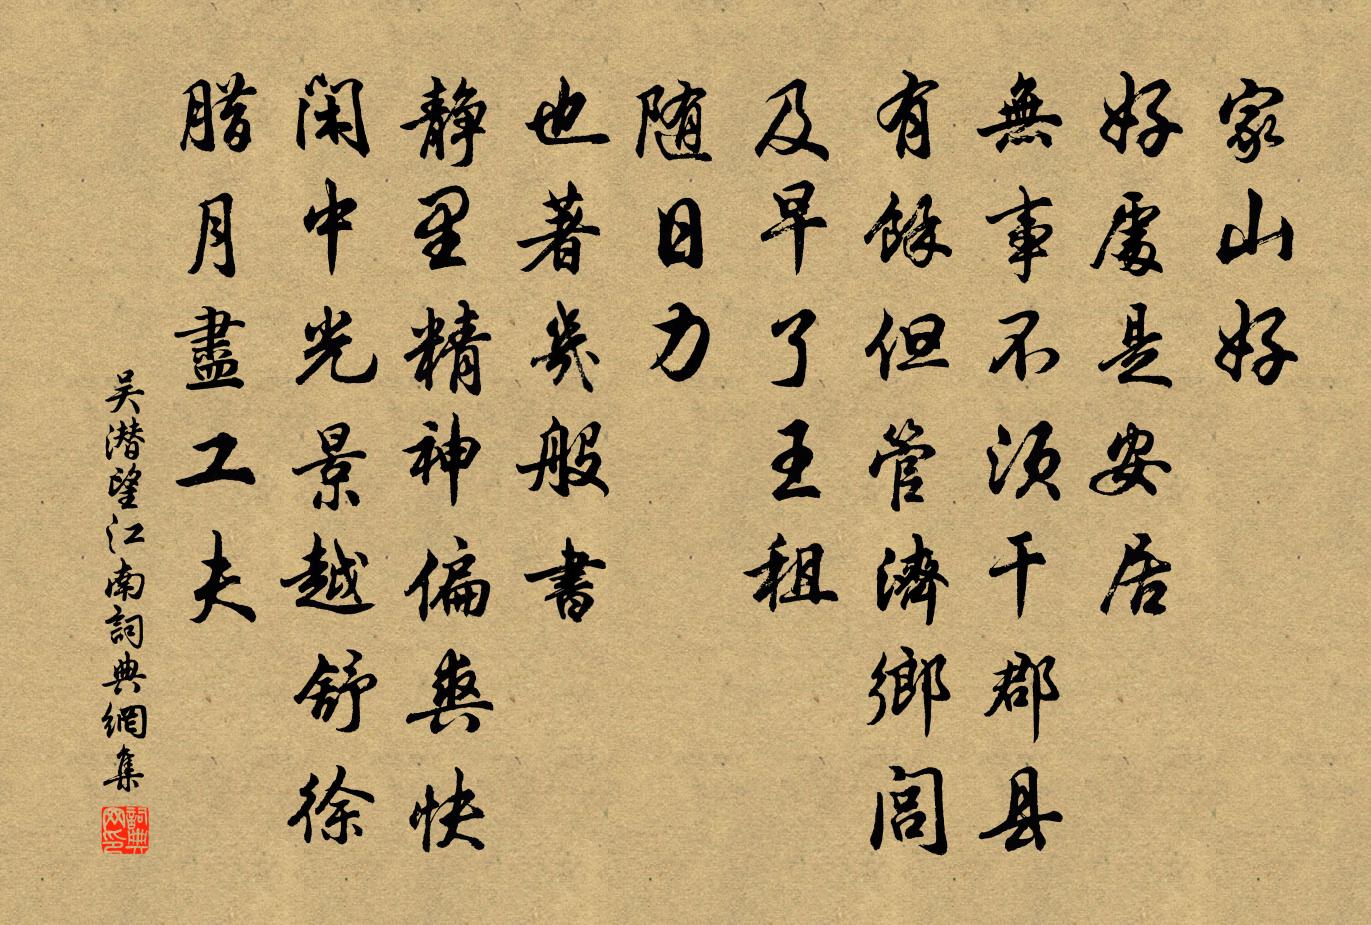 家山好
好處是安居
無事不須干郡县
有餘但管濟鄉闾
及早了王租
随日力
也著幾般書
静里精神偏爽快
闲中光景越舒徐
腊月盡工夫
吴潜望江南詞典網集
詞典网印